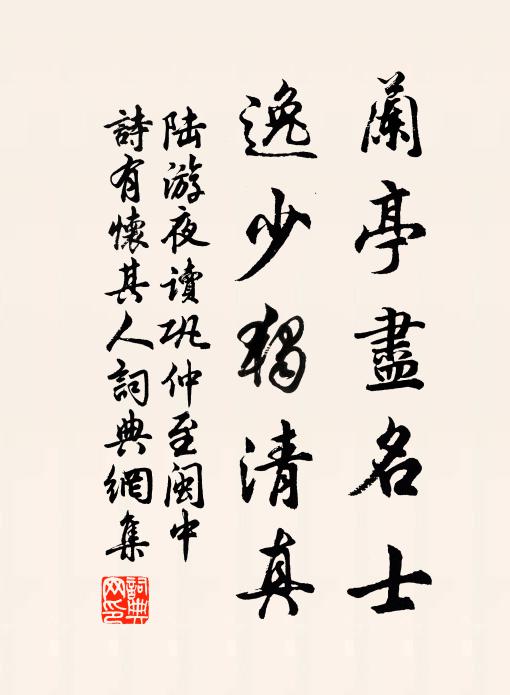 蘭亭盡名士
逸少獨清真
陸游夜讀巩仲至閩中
詩有懷其人詞典網集
詞典網印